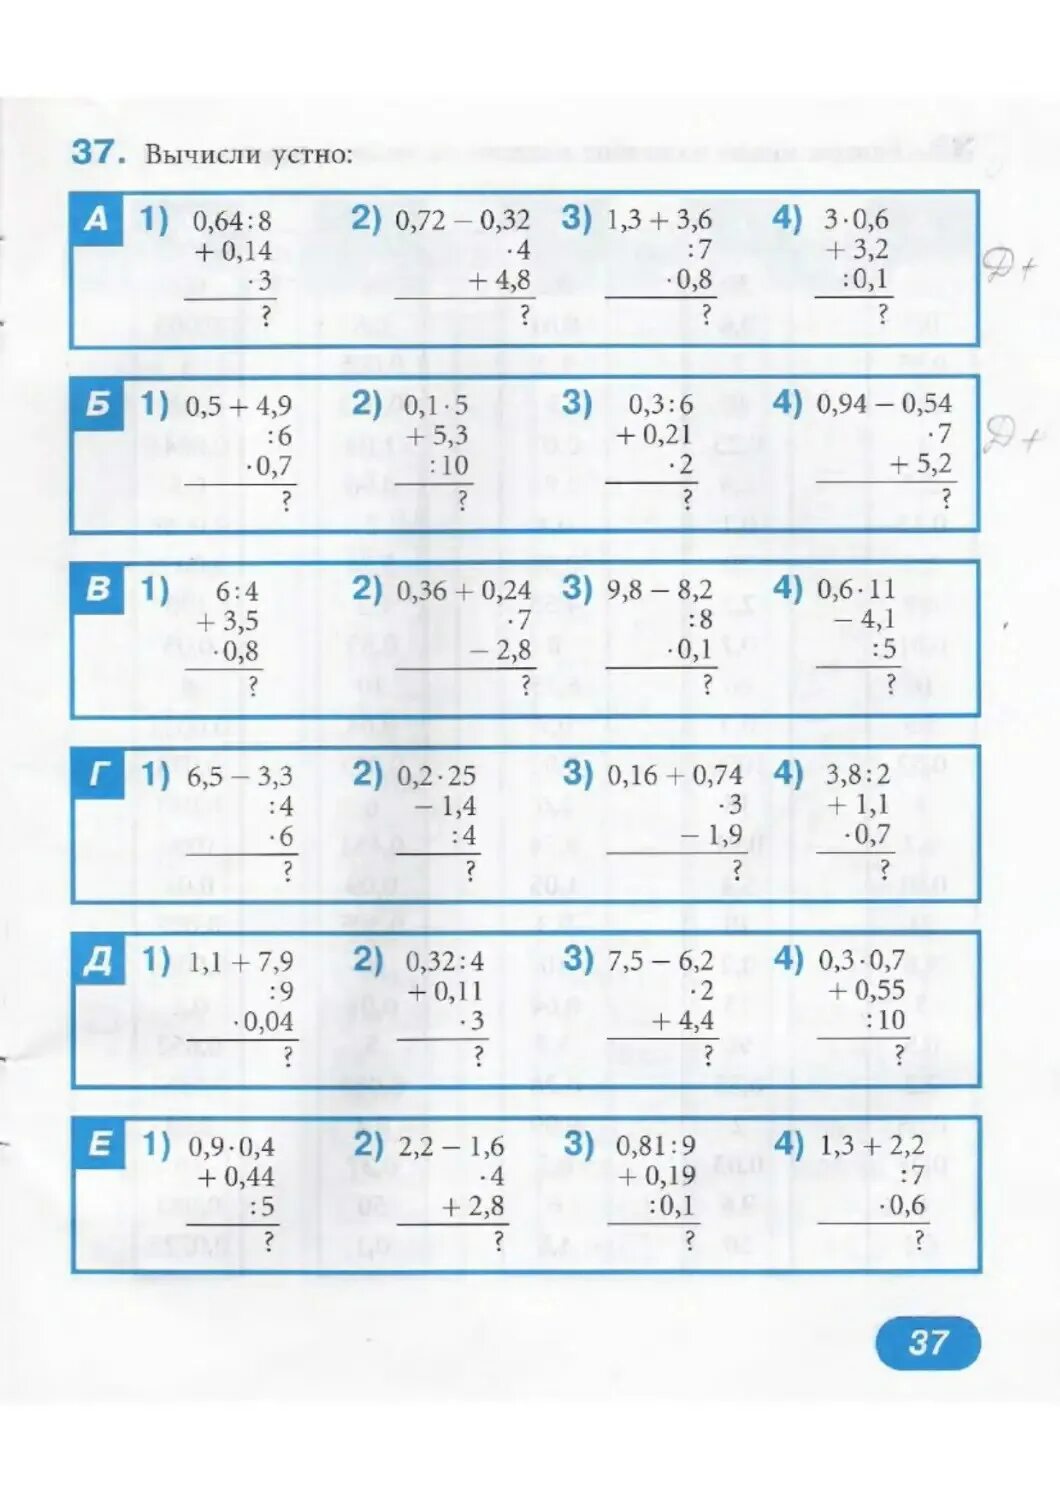 37. Вычисли устно:
А 1) 0,64:8 2) 0,72 – 0,32 3) 1,3 + 3,6 4) 3·0,6
+ 0,14 ·4 :7 + 3,2
·3 + 4,8 ·0,8 :0,1
? ? ? ?
Д+
Б 1) 0,5 + 4,9 2) 0,1·5 3) 0,3:6 4) 0,94 – 0,54
:6 + 5,3 + 0,21 ·7
·0,7 :10 ·2 + 5,2
? ? ? ?
Д+
В 1) 6:4 2) 0,36 + 0,24 3) 9,8 – 8,2 4) 0,6·11
+ 3,5 ·7 :8 – 4,1
·0,8 – 2,8 ·0,1 :5
? ? ? ?
Г 1) 6,5 – 3,3 2) 0,2·25 3) 0,16 + 0,74 4) 3,8:2
:4 – 1,4 ·3 + 1,1
·6 :4 – 1,9 ·0,7
? ? ? ?
Д 1) 1,1 + 7,9 2) 0,32:4 3) 7,5 – 6,2 4) 0,3·0,7
:9 + 0,11 ·2 + 0,55
·0,04 ·3 + 4,4 :10
? ? ? ?
Е 1) 0,9·0,4 2) 2,2 – 1,6 3) 0,81:9 4) 1,3 + 2,2
+ 0,44 ·4 + 0,19 :7
:5 + 2,8 :0,1 ·0,6
? ? ? ?
37